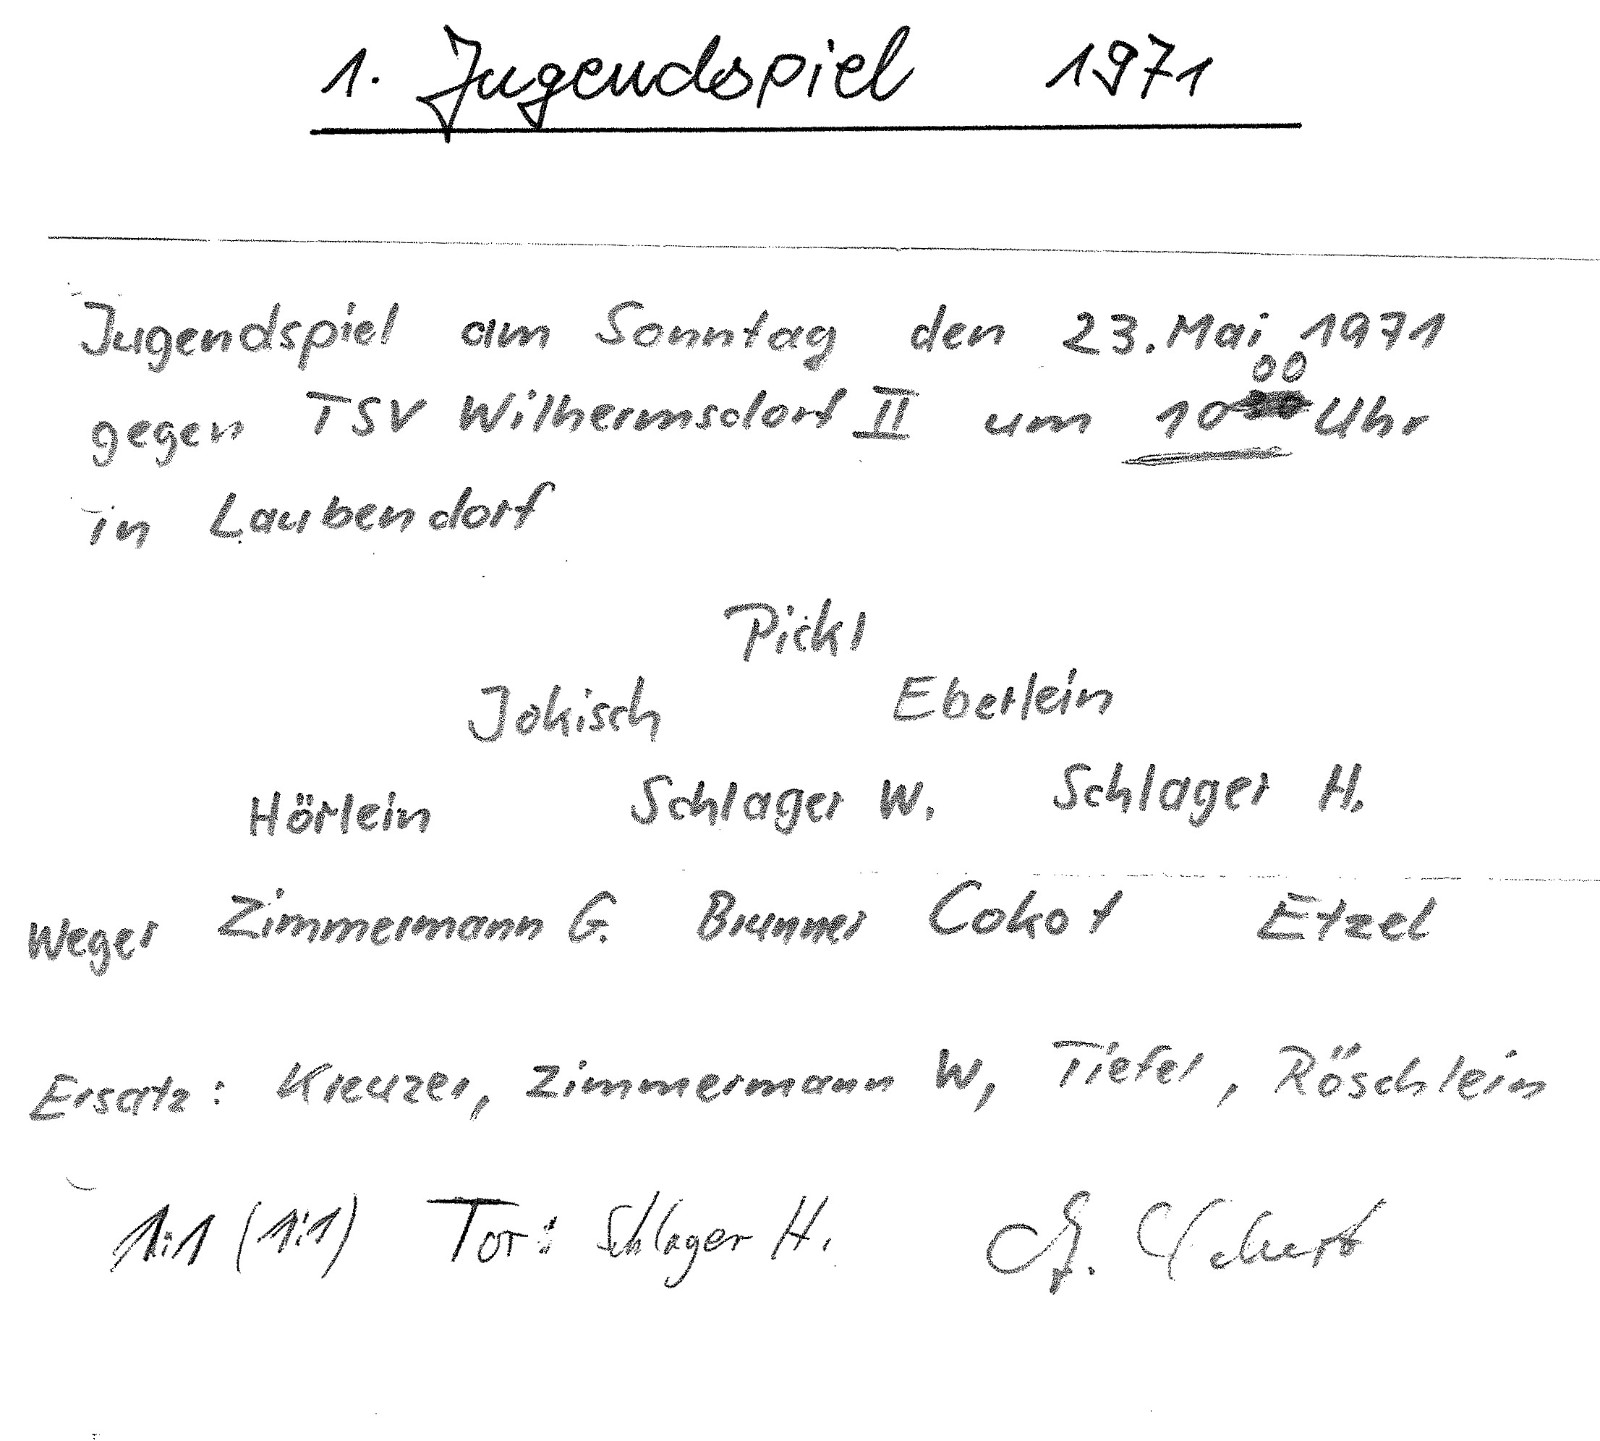 1. Jugendspiel 1971
Jugendspiel am Sonntag den 23. Mai 1971
gegen TSV Wilhermsdorf II um 10 00 Uhr
in Laubendorf
Pickl
Jokisch Eberlein
Hörlein Schlager W. Schlager H.
Weger Zimmermann G. Brunner Cokot Etzel
Ersatz: Kreuzer, Zimmermann W, Tiefel, Röschlein
1:1 (1:1) Tor: Schlager H.